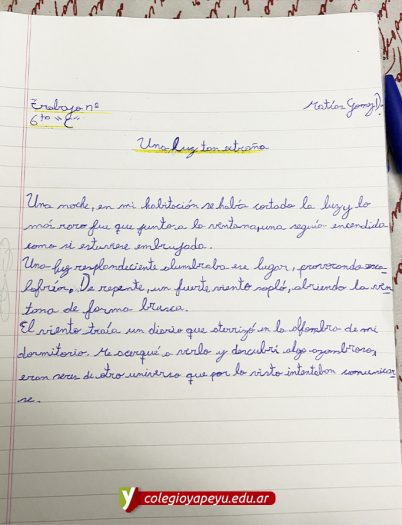 Trabajo nº
Matías Gomez D.
6to "C"
Una luz tan extraña
Una noche, en mi habitación se había cortado la luz y lo
más raro fue que junto a la ventana, una seguía encendida
como si estuviese embrujada.
Una luz resplandeciente alumbraba ese lugar, provocando esca-
lofríos. De repente, un fuerte viento sopló, abriendo la ven-
tana de forma brusca.
El viento traía un diario que aterrizó en la alfombra de mi
dormitorio. Me acerqué a verlo y descubrí algo asombroso,
eran seres de otro universo que por lo visto intentaban comunicar-
se.
y colegioyapeyu.edu.ar